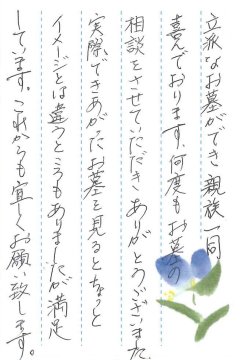 立派なお墓ができ親族一同
喜んでおります、何度もお墓の
相談をさせていただきありがとうございました
実際できあがったお墓を見るとちょっと
イメージとは違うところもありましたが満足
しています。これからも宜しくお願い致します。